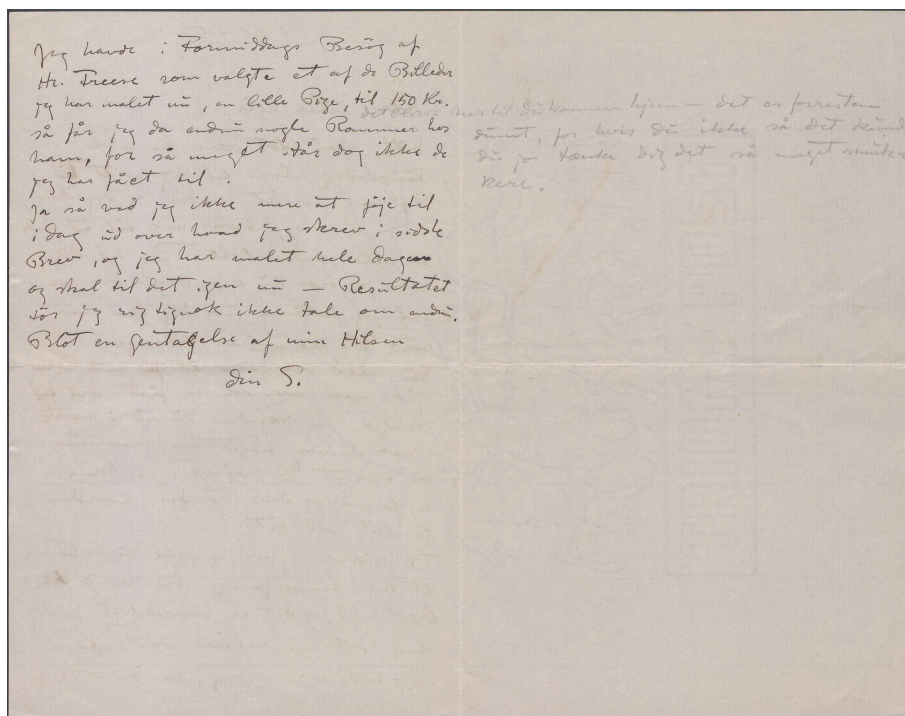 Jeg havde i Formiddags Besög af
Hr. Freese som valgte et af de Billeder
jeg har malet nu, en lille Pige, til 150 Kr.
så får jeg da endnu nogle Rammer hos
ham, for så meget står dog ikke de
jeg har fået til.
Ja så ved jeg ikke mere at föje til
i dag ud over hvad jeg skrev i sidste
Brev, og jeg har malet hele dagen
og skal til det igen nu — Resultatet
tör jeg rigtignok ikke tale om endnu.
Blot en gentagelse af min Hilsen
din S.
det bliver her til du kommer hjem — det er forresten
dumt, for hvis du ikke så det kunde
du jo tænke dig det så meget smuk-
kere.